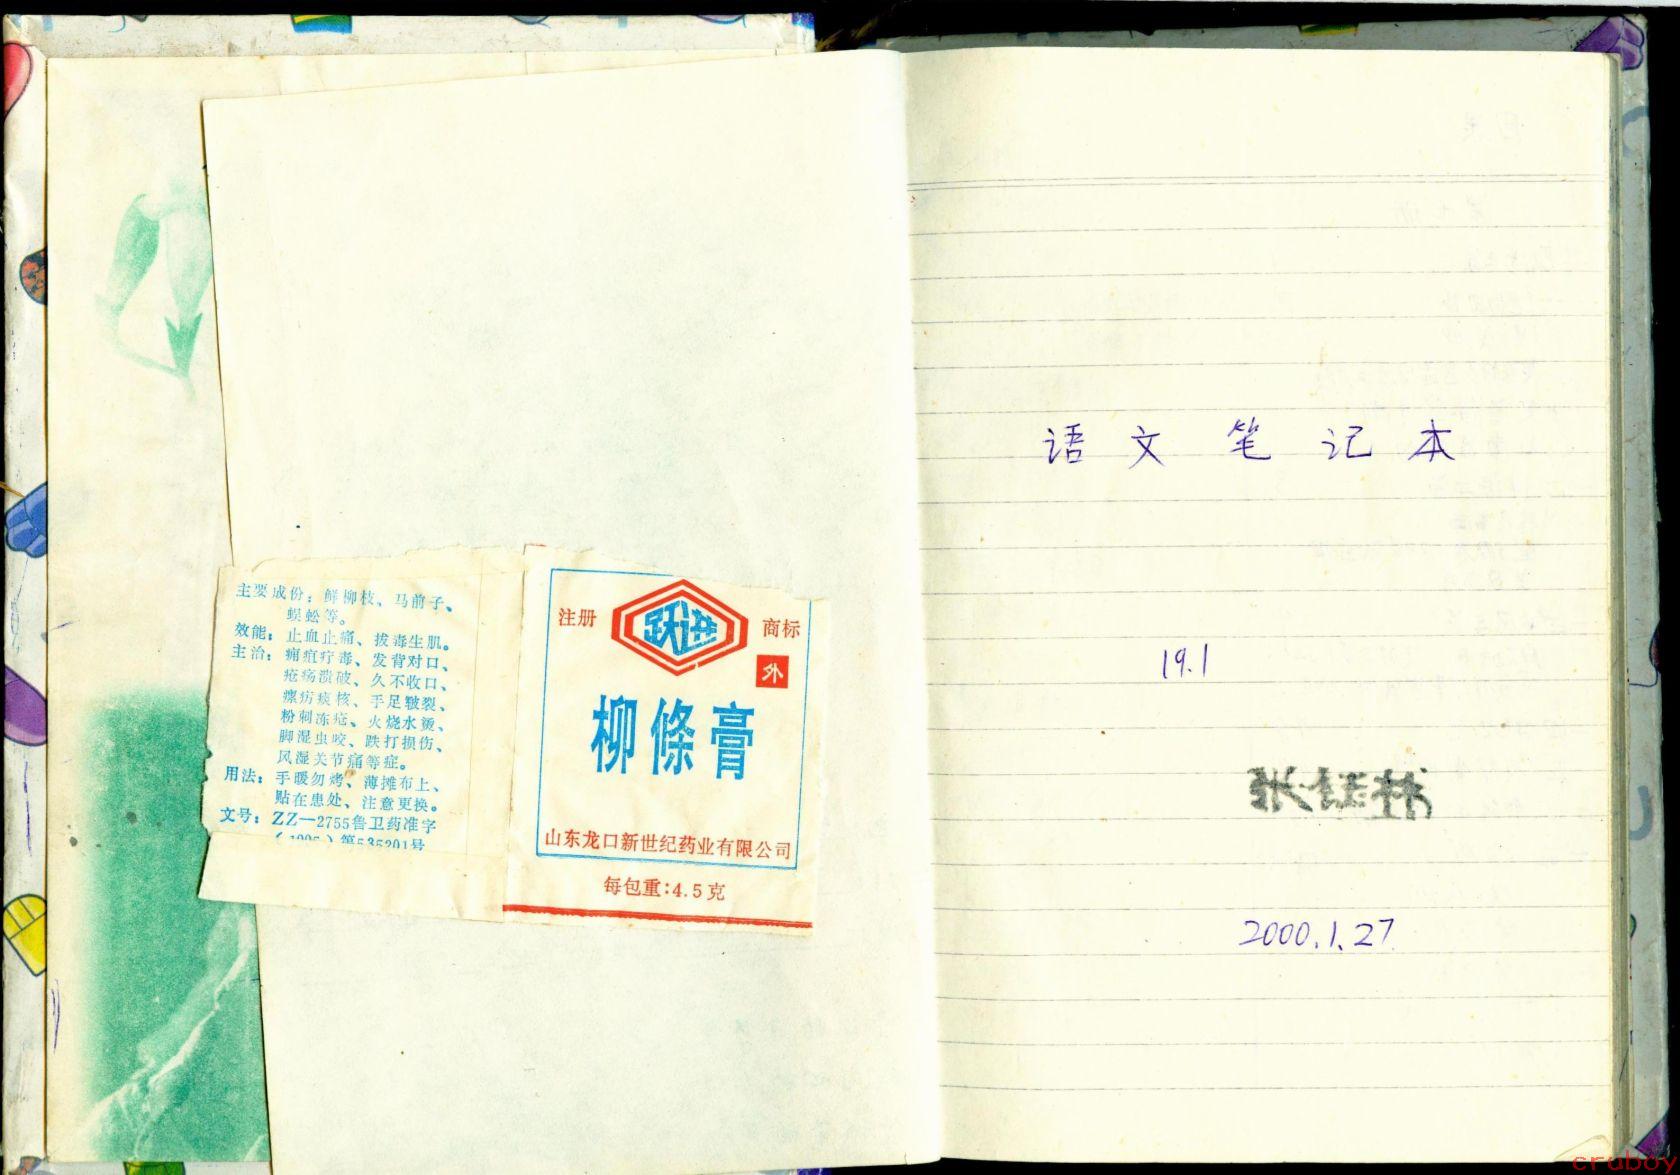 主要成份：鲜柳枝、马前子、
蜈蚣等。
效能：止血止痛、拔毒生肌。
主治：痈疽疔毒、发背对口、
疮疡溃破、久不收口、
瘰疬痰核、手足皲裂、
粉刺冻疮、火烧水烫、
脚湿虫咬、跌打损伤、
风湿关节痛等症。
用法：手暖勿烤、薄摊布上、
贴在患处、注意更换。
文号：ZZ—2755鲁卫药准字
(1995)第535201号
注册 跃进 商标
外
柳條膏
山东龙口新世纪药业有限公司
每包重:4.5克
语文笔记本
19.1
2000.1.27
cruboy